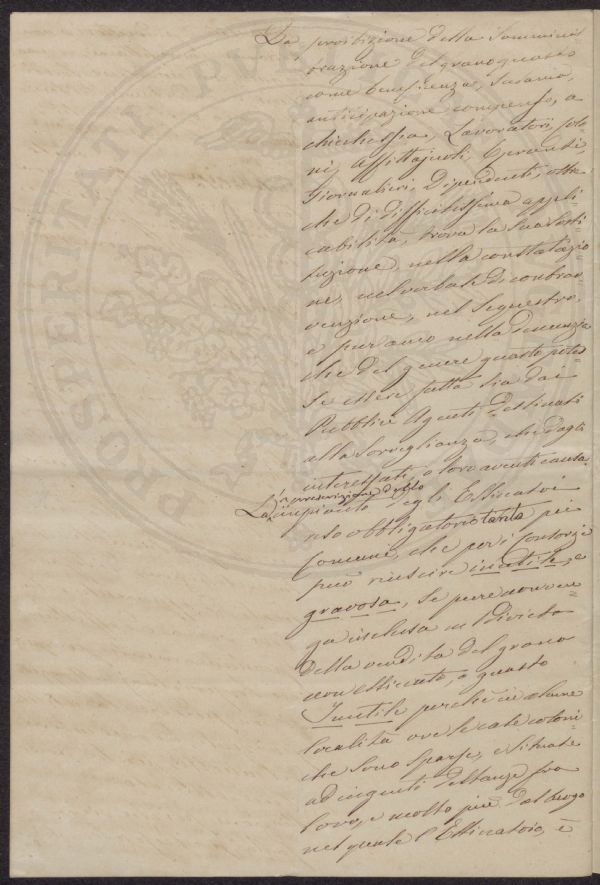 La proibizione della Sommini=
strazione del grano guasto
come beneficenza, Susame,
anticipazione compenso, a
chichessia, Lavoratori, Colo
ni, Affittajuoli, Operandi,
Giornalieri, Dipendenti, oltre
che di difficilissima appli=
cabilità, trova la sua Costi
tuzione, nella constatazio
ne, nel verbale di contrav
venzione, nel Sequestro,
e pur anco nella denunzia
che del genere guasto potes=
se essere fatta sia dai
Pubblici Agenti destinati
alla Sorveglianza, che dagli
interessati, o loro aventi causa.
La prescrizione dello
impianto degli Essiccatoi
reso obbligatorio tanto pei
Comuni, che per i Consorzi
può riuscire inutile, e
gravosa, se pure non ven=
ga inclusa nel Divieto
della vendita del grano
non essiccato, o guasto
Inutile perchè in alcune
località ove le case coloni
che sono sparse, e situate
ad ingenti distanze fra
loro, e molto più dal luogo
nel quale l'Essiccatoio, è
PROSPERITATI PVBLICAE